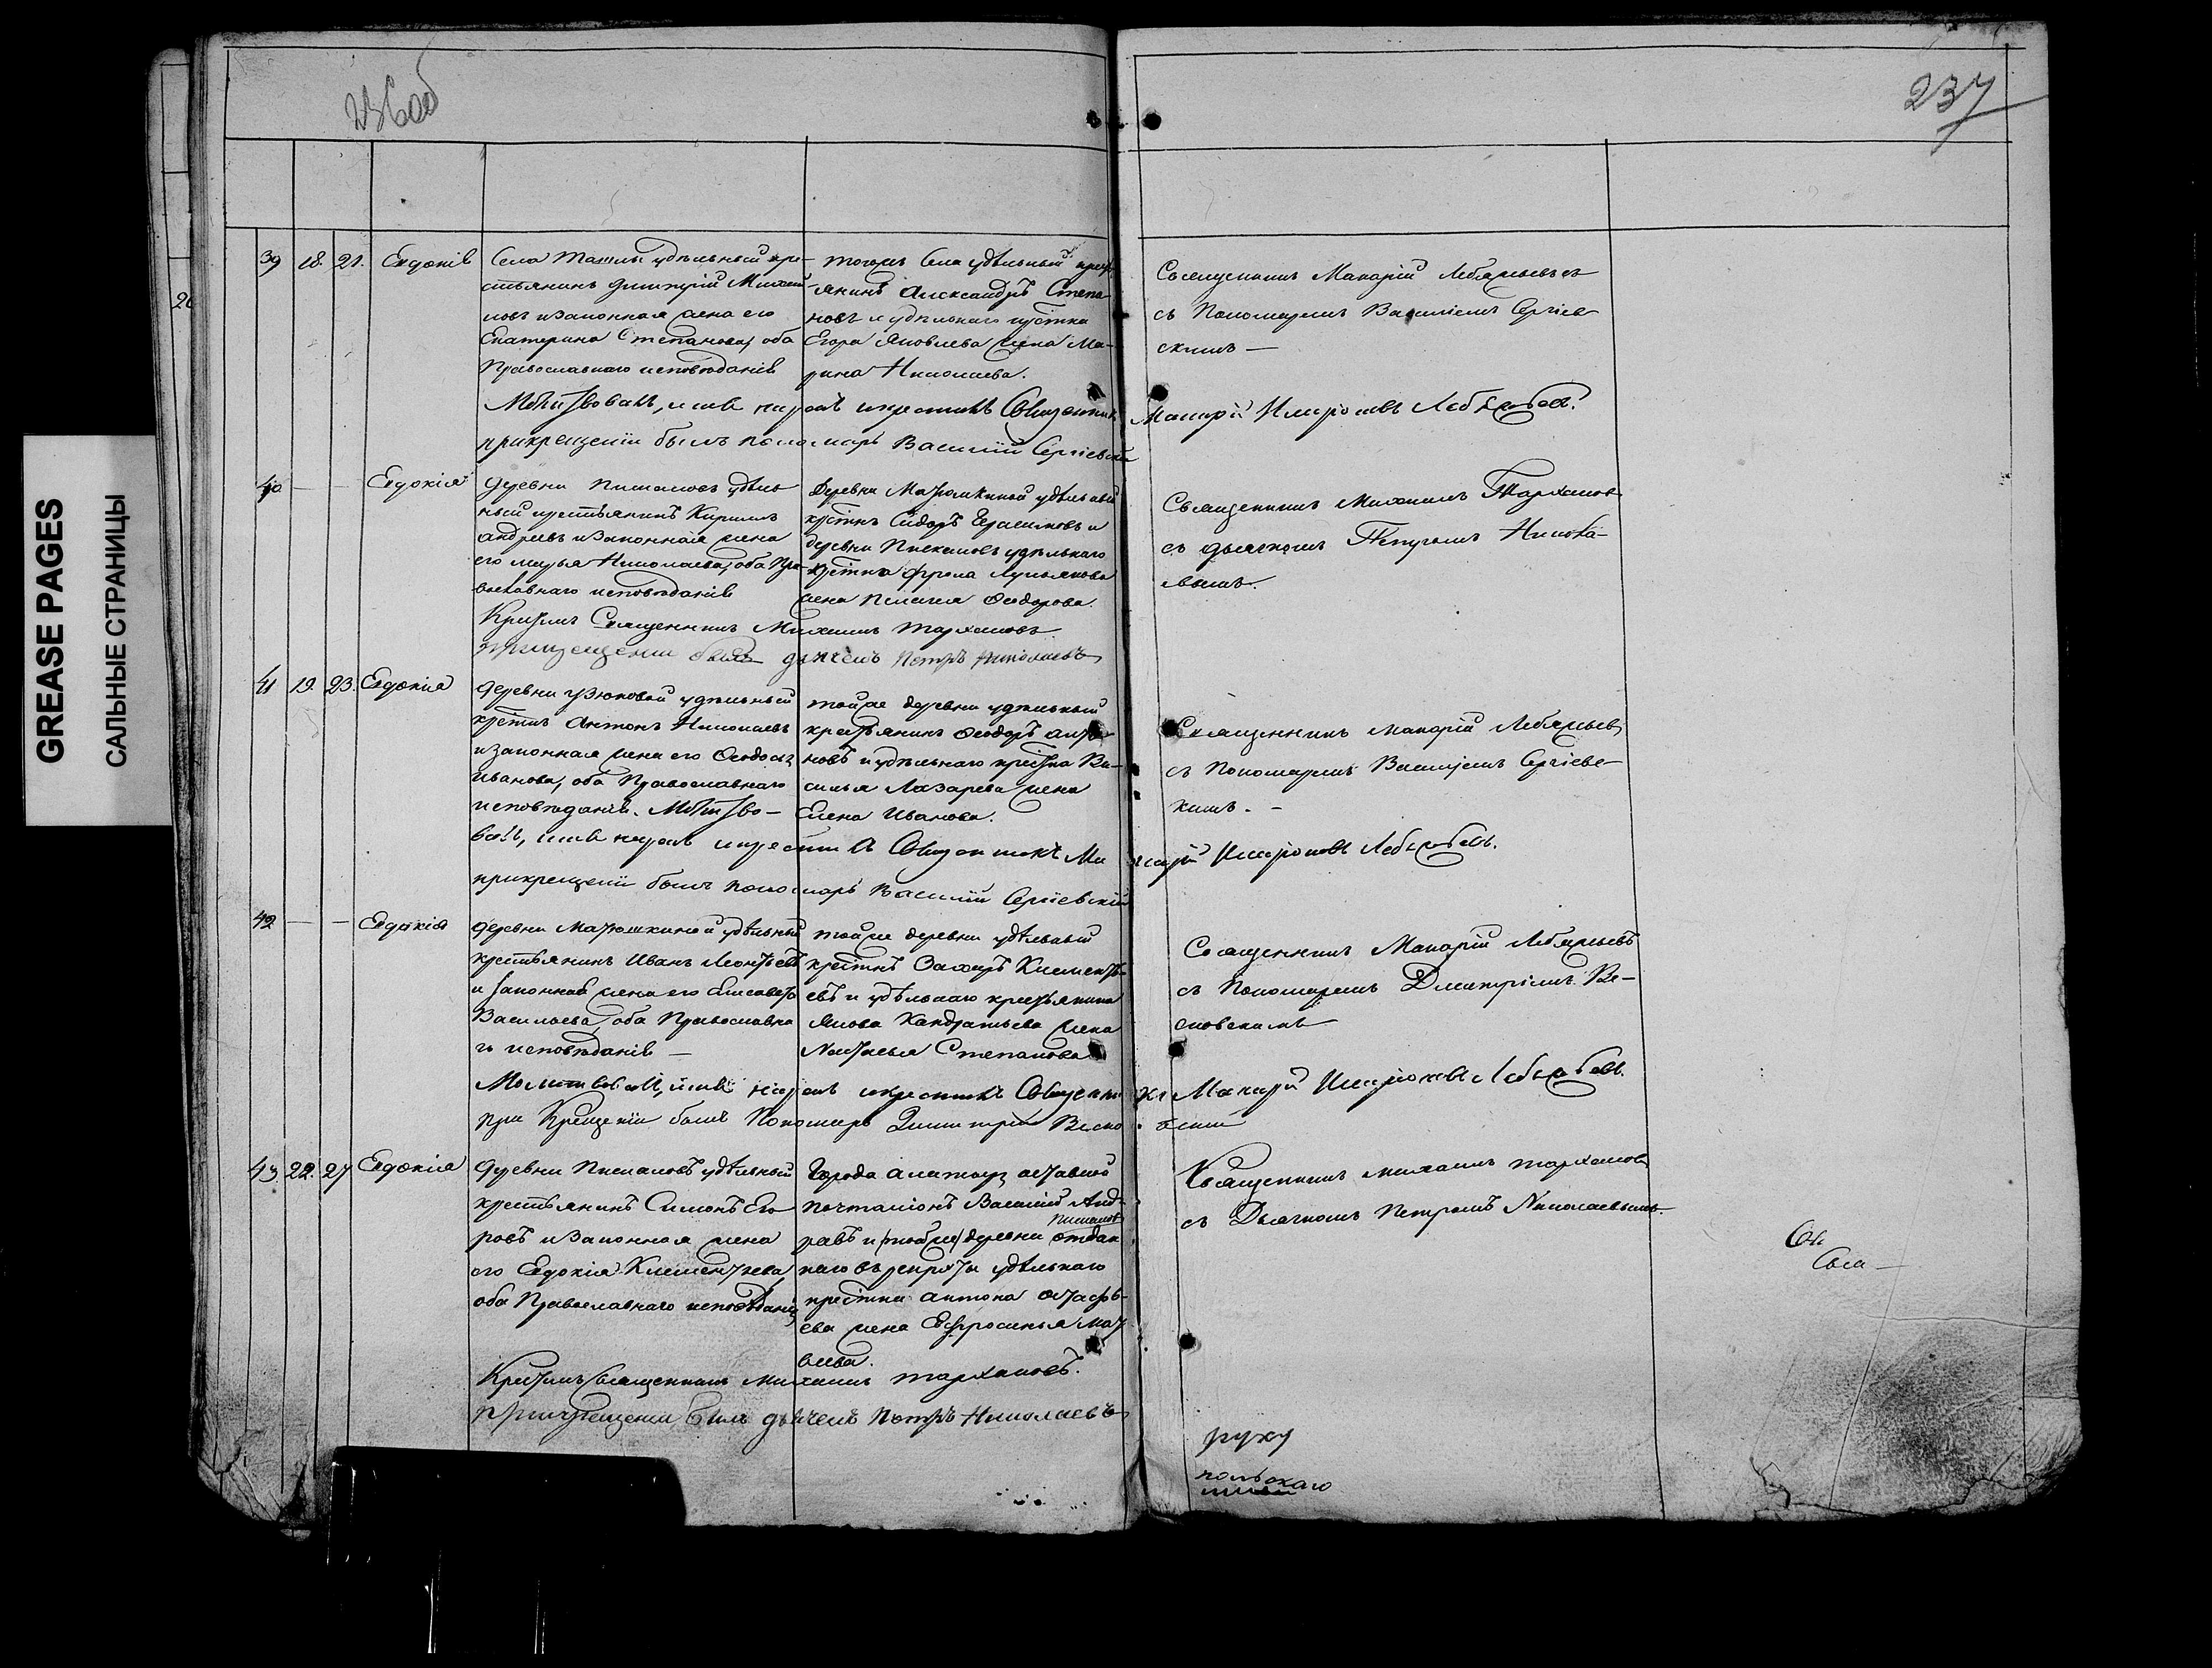 236об
237
GREASE PAGES
САЛЬНЫЕ СТРАНИЦЫ
39 18. 21. Евдокія
Села Ташлы удѣльный кре-
стьянинъ Димитрій Михай-
ловъ и законная жена его
Екатерина Степанова, оба
Православнаго исповѣданія
тогожъ Села удѣльный крест-
янинъ Александръ Степа-
новъ и удѣльнаго крстнна
Егора Яковлева жена Ма-
рина Николаева.
Священникъ Макарій Лебяжьевъ
съ Пономаремъ Василіемъ Сергіев-
скимъ —
Молитвовалъ, имя нарекъ и крестилъ Священникъ Макарій Иларіоновъ Лебяжьевъ.
при крещеніи былъ пономарь Василій Сергіевскій
40 — — Евдокія
Деревни удѣль-
ный крестьянинъ Кирилъ
Андреевъ и законная жена
его Марья Николаева, оба Пра-
вославнаго исповѣданія
Деревни Матюшкиной удѣльный
крстнъ Сидоръ Герасимовъ и
деревни удѣльнаго
крстнна Фрола Лукьянова
жена Пелагея Ѳеодорова.
Священникъ Михаилъ Тархановъ
съ дьячкомъ Петромъ Никола-
евымъ.
Крестилъ Священникъ Михаилъ Тархановъ.
при крещеніи былъ дьячекъ Петръ Николаевъ
41 19. 23. Евдокія
Деревни Урюповой удѣльный
крстнъ Антонъ Николаевъ
и законная жена его Ѳеодосья
Иванова, оба Православнаго
исповѣданія. Молитво-
тойже деревни удѣльный
крестьянинъ Ѳеодоръ
новъ и удѣльнаго крестнна Ва-
силья Лазарева жена
Елена Иванова.
Священникъ Макарій Лебяжьевъ
съ Пономаремъ Василіемъ Сергіевс-
кимъ. —
валъ, имя нарекъ и крестилъ Священникъ Макарій Иларіоновъ Лебяжьевъ.
при крещеніи былъ пономарь Василій Сергіевскій
42 — — Евдокія
Деревни Матюшкиной удѣльный
крестьянинъ Иванъ Леонтьевъ
и законная жена его Елисавета
Васильева, оба Православна
го исповѣданія —
тойже деревни удѣльный
крестнъ Захаръ Клементь-
евъ и удѣльнаго крестьянина
Якова Кандратьева жена
Настасья Степанова
Священникъ Макарій Лебяжьевъ
съ Пономаремъ Димитріемъ Ве-
сновскимъ
Молитвовалъ, имя нарекъ и крестилъ Священникъ Макарій Иларіоновъ Лебяжьевъ.
при Крещеніи былъ Пономарь Димитрій Весновскій
43. 22. 27 Евдокія
Деревни удѣльный
крестьянинъ Симонъ Его-
ровъ и законная жена
его Евдокія Клементьева,
оба Православнаго исповѣданія
Города Алатыря отставной
почталіонъ Василій Анд-
реевъ и (тойже) деревни отдан-
наго въ рекруты удѣльнаго
крестнна Антона Астафь-
ева жена Ефросинья Мат-
вѣева.
Священникъ Михаилъ Тархановъ
съ Дьячкомъ Петромъ Николаевымъ.
Крестилъ Священникъ Михаилъ Тархановъ.
при крещеніи былъ дьячекъ Петръ Николаевъ
руку